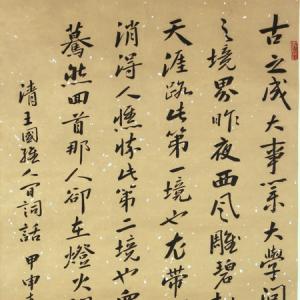 古之成大事業大学問
之境界昨夜西风雕碧
天涯路此第一境也衣带
消得人憔悴此第二境也眾
驀然回首那人卻在燈火
清王國維人间詞話 甲申